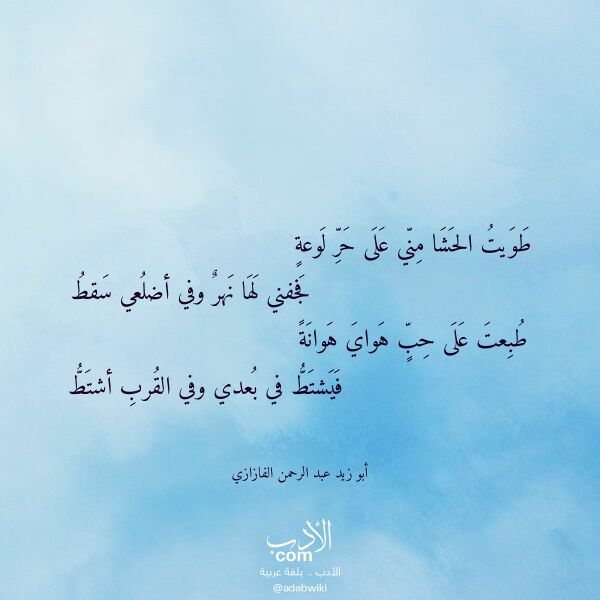 طَوَيتُ الحَشَا مِنّي عَلَى حَرِّ لَوعةٍ
فَجفني لَهَا نَهرٌ وفي أضلُعي سَقطُ
طُبِعتَ عَلَى حِبٍّ هَوايَ هَوانَةً
فَيَشتَطُّ في بُعدي وفي القُربِ أشتَطُّ
أبو زيد عبد الرحمن الفازازي
الأدب
com
الأدب .. بلغة عربية
@adabwiki